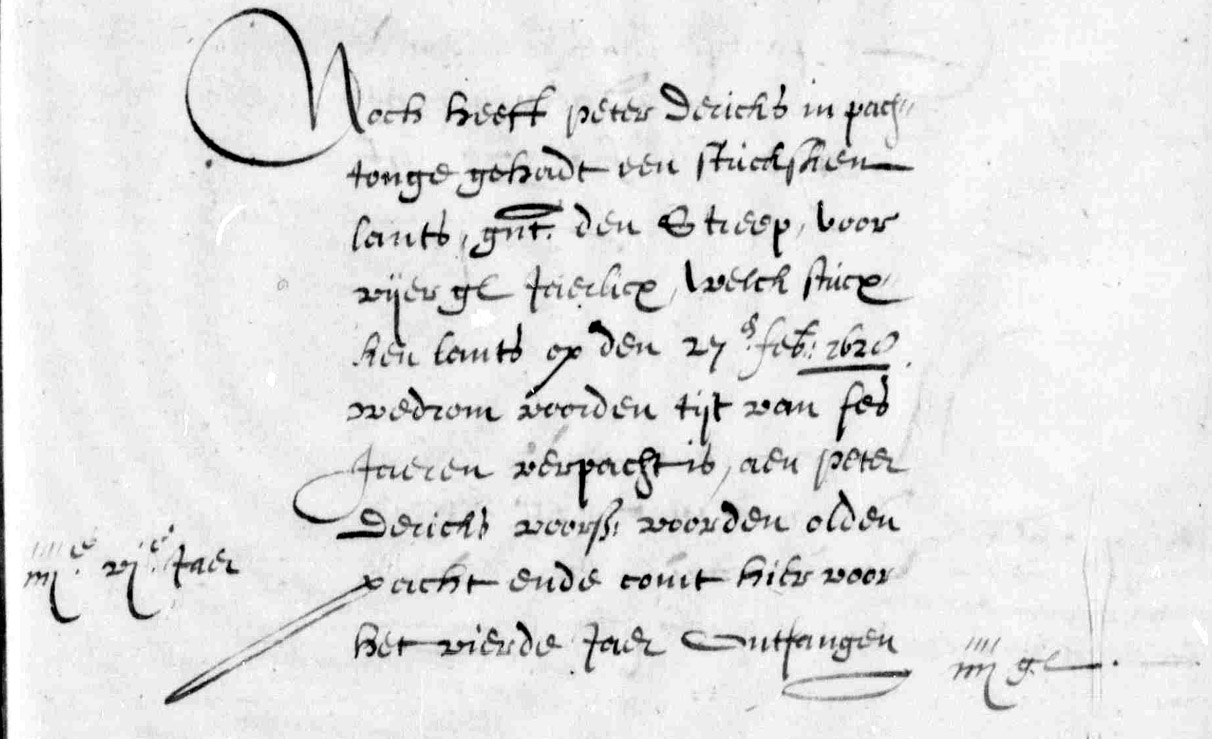 Noch heeft peter Dericks in pach„
tonge gehadt een stucksken
lants, gnt. den Streep, voor
vijer gl Jaerlicx, Welck stucx„
ken lants op den 27 feb: 1628
wedrom voorden tijt van ses
Jaeren verpacht is, aen peter
Dericks voors: voorden olden
pacht ende comt hier voor
iiij e vj e Jaer
het vierde Jaer Ontfangen
iiij gl